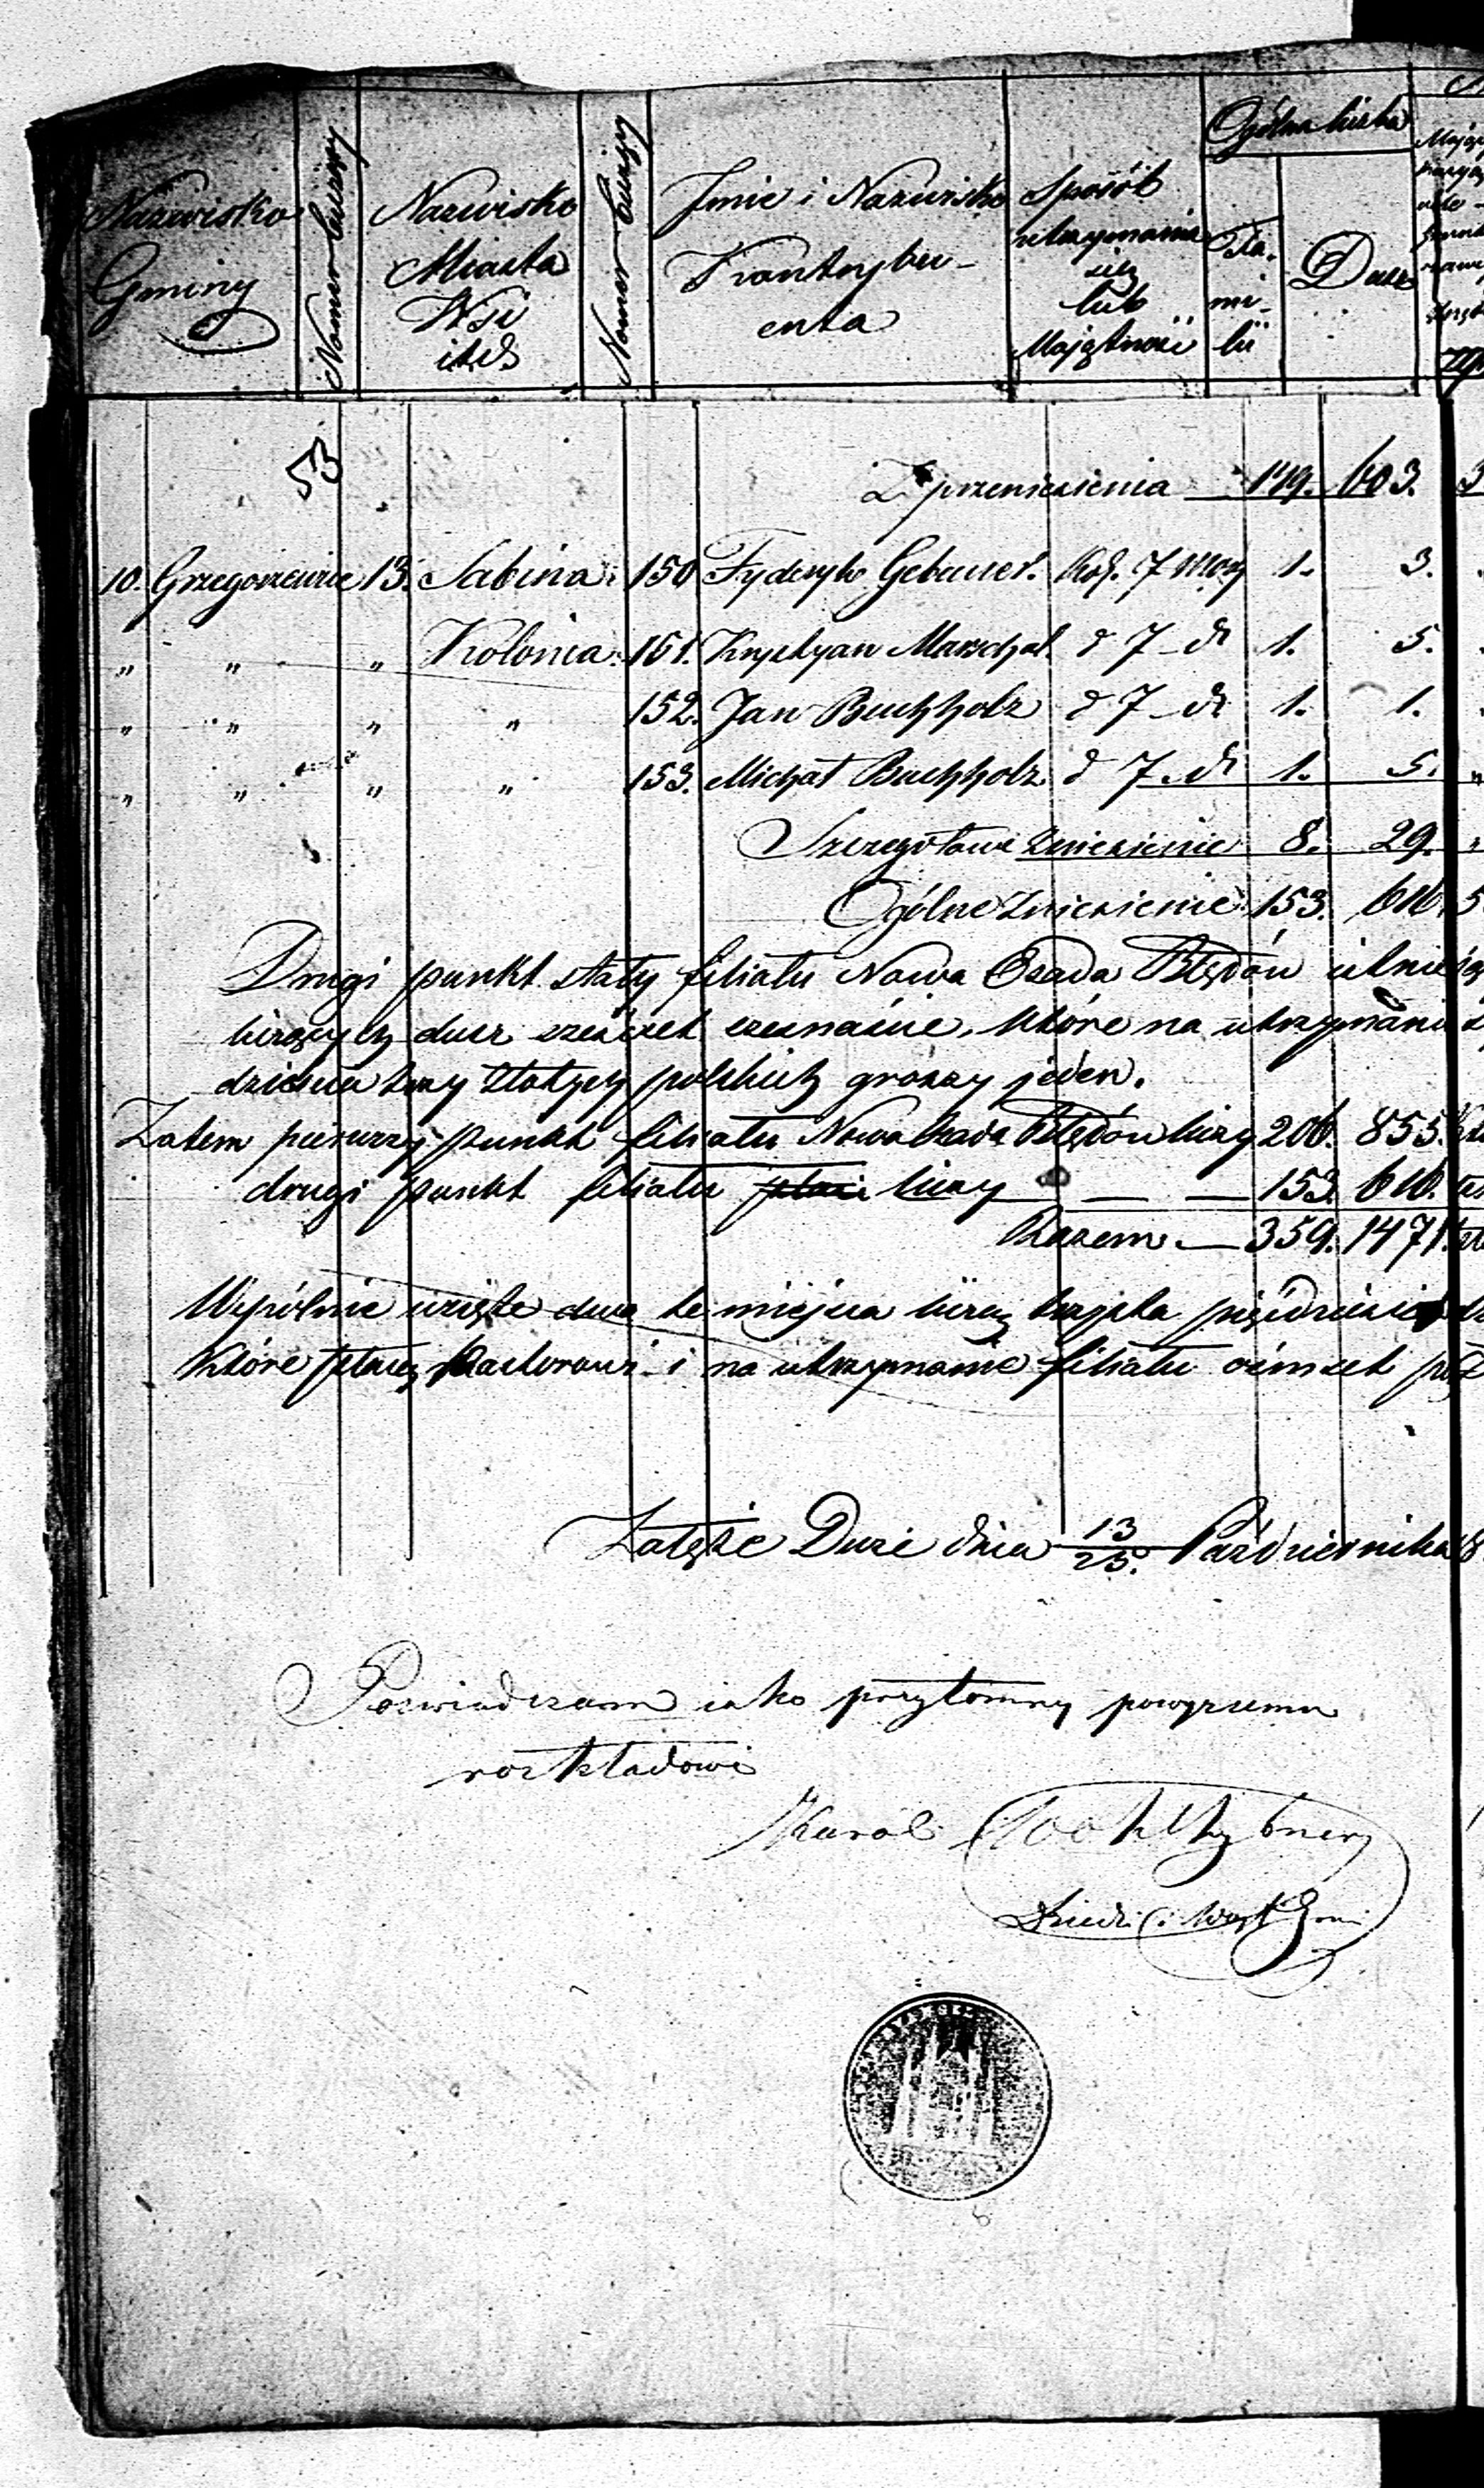 Nazwisko Gminy
Numer bieżący
Nazwisko Miasta Wsi itd
Numer bieżący
Jmie i Nazwisko Kontrybu-enta
Sposób utrzymania się lub Majętności
Ogólna liczba
Fa-mi-lii
Dusz
53
Z przeniesienia — 149. 603. 3
10. Grzegorzewice 13. Sabina 150 Fryderyk Gebauer. Kol. 7 morg 1. 3.
„ „ „ Kolonia 151. Krystyan Marschal. d 7 – dt 1. 5.
„ „ „ „ 152. Jan Buchholz d 7 – dt 1. 1.
„ „ „ „ 153. Michał Buchholz. d 7. dt 1. 5. „
Szczegółowe zniesienie 8. 29. „
Ogólne zniesienie 153. 616. 5
Drugi punkt stały filiału Nowa Osada Błędów
liczących dusz sześćset szesnaście, które na utrzymanie
trzy złotych polskich groszy jeden.
Zatem pierwszy punkt filiału Nowa Osada Błędów liczy 206. 855.
drugi punkt filiału liczy — — 153. 616.
Razem — 359. 1471.
Wspólnie wzięte dwa te miejsca liczą trzysta
Które płacą Pastorowi i na utrzymanie filiału ośmset
Załęże Duże dnia 13/25. Października 18
Poswiadczam iako przytomny powyrszemu
rozkładowi
Karol
Dziedzi i Woyt Gmi